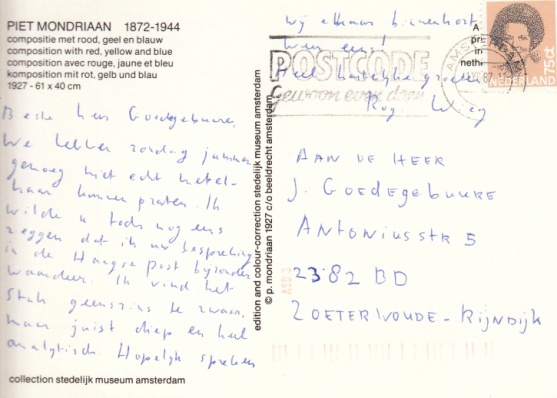 PIET MONDRIAAN 1872-1944
compositie met rood, geel en blauw
composition with red, yellow and blue
composition avec rouge, jaune et bleu
komposition mit rot, gelb und blau
1927 - 61 x 40 cm
Beste heer Goedegebuure,
We hebben zondag jammer
genoeg niet echt met el-
kaar kunnen praten. Ik
wilde u toch nog eens
zeggen dat ik uw bespreking
in de Haagse post bijzonder
waardeer. Ik vind het
stuk geenszins te zwaar,
maar juist diep en heel
analytisch. Hopelijk spreken
wij elkaar binnenkort
weer eens!
Heel hartelijke groeten
Rog. Wieg
collection stedelijk museum amsterdam
edition and colour-correction stedelijk museum amsterdam
© p. mondriaan 1927 c/o beeldrecht amsterdam
POSTCODE
gewoon even doen
AMSTERDAM
NEDERLAND
75ct
AAN DE HEER
J. GOEDEGEBUURE
ANTONIUSSTR 5
2382 BD
ZOETERWOUDE-RIJNDIJK